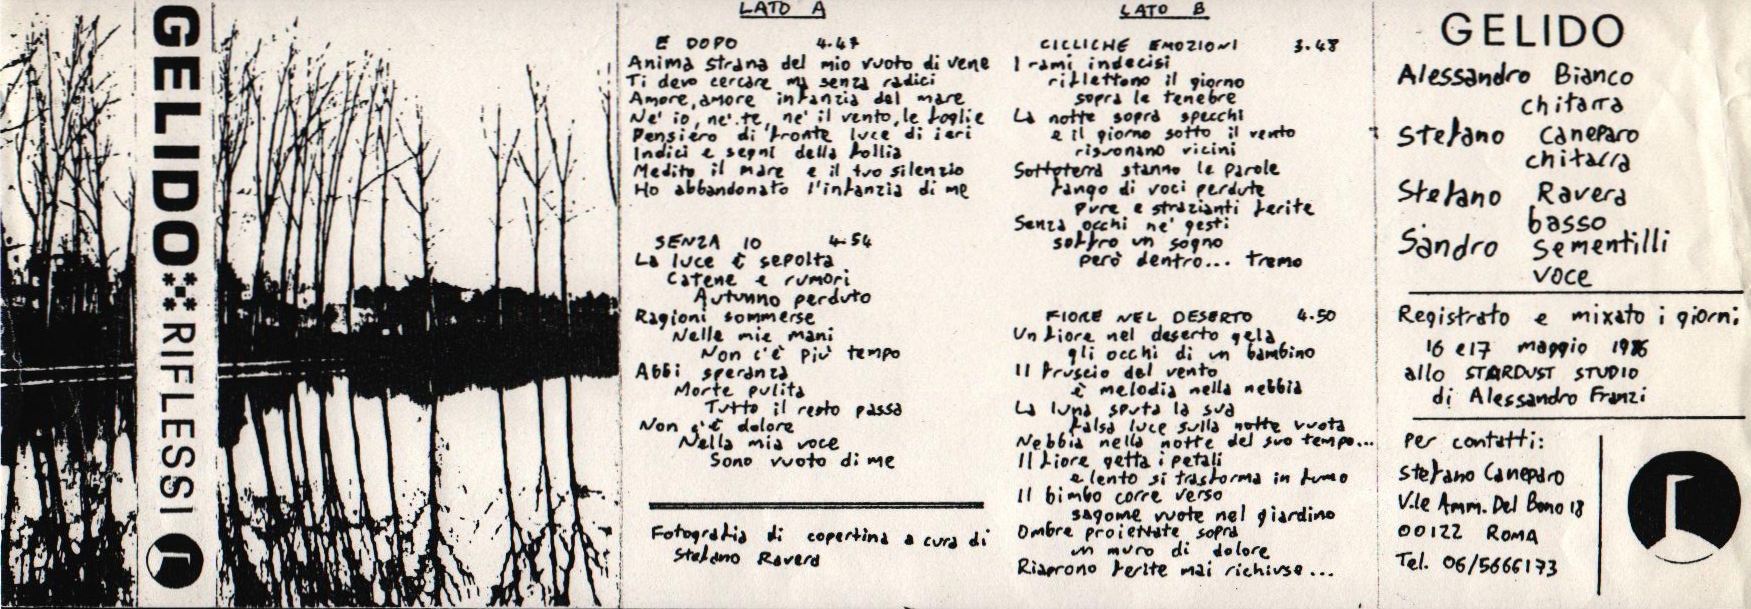 GELIDO
RIFLESSI
LATO A
E DOPO 4.47
Anima strana del mio vuoto di vene
Ti devo cercare ma senza radici
Amore, amore infanzia del mare
Ne' io, ne' te, ne' il vento, le foglie
Pensiero di fronte luce di ieri
Indici e segni della follia
Medito il mare e il tuo silenzio
Ho abbandonato l'infanzia di me
SENZA IO 4.54
La luce è sepolta
Catene e rumori
Autunno perduto
Ragioni sommerse
Nelle mie mani
Non c'è più tempo
Abbi speranza
Morte pulita
Tutto il resto passa
Non c'è dolore
Nella mia voce
Sono vuoto di me
Fotografia di copertina a cura di
Stefano Ravera
LATO B
CICLICHE EMOZIONI 3.48
I rami indecisi
riflettono il giorno
sopra le tenebre
La notte sopra specchi
e il giorno sotto il vento
risuonano vicini
Sottoterra stanno le parole
fango di voci perdute
pure e strazianti ferite
Senza occhi ne' gesti
soffro un sogno
però dentro... tremo
FIORE NEL DESERTO 4.50
Un fiore nel deserto gela
gli occhi di un bambino
Il fruscio del vento
è melodia nella nebbia
La luna sputa la sua
falsa luce sulla notte vuota
Nebbia nella notte del suo tempo...
Il fiore getta i petali
e lento si trasforma in fumo
Il bimbo corre verso
sagome vuote nel giardino
Ombre proiettate sopra
un muro di dolore
Riaprono ferite mai richiuse...
GELIDO
Alessandro Bianco
chitarra
Stefano Caneparo
chitarra
Stefano Ravera
basso
Sandro Sementilli
voce
Registrato e mixato i giorni
16 e 17 maggio 1986
allo STARDUST STUDIO
di Alessandro Franzi
per contatti:
Stefano Caneparo
V.le Amm. Del Bono 18
00122 ROMA
Tel. 06/5666173